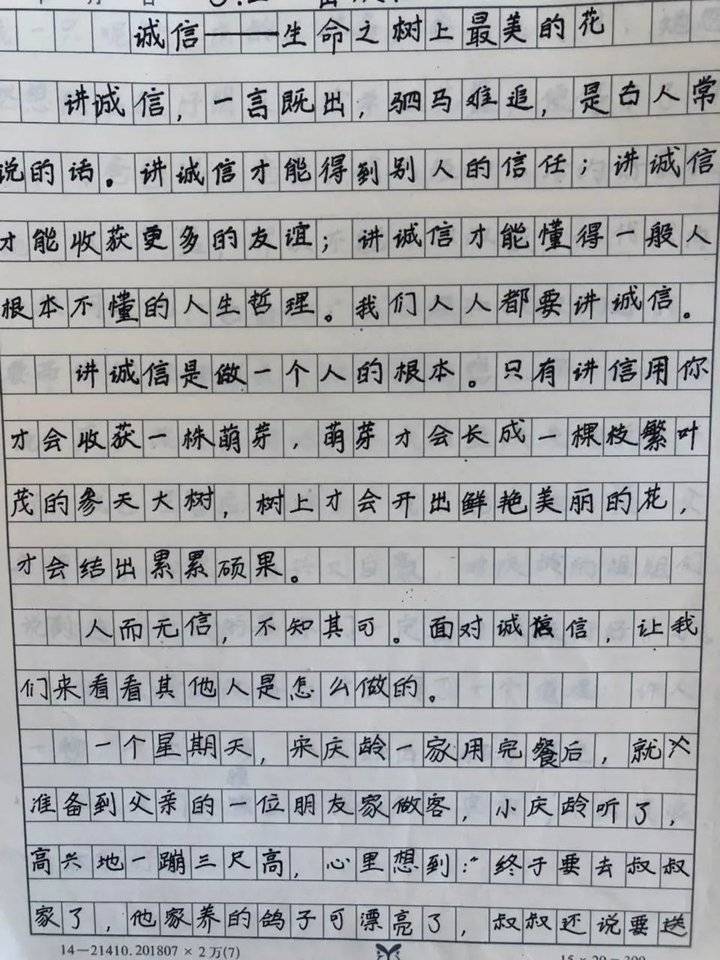 诚信——生命之树上最美的花
讲诚信，一言既出，驷马难追，是古人常
说的话。讲诚信才能得到别人的信任；讲诚信
才能收获更多的友谊；讲诚信才能懂得一般人
根本不懂的人生哲理。我们人人都要讲诚信。
讲诚信是做一个人的根本。只有讲信用你
才会收获一株萌芽，萌芽才会长成一棵枝繁叶
茂的参天大树，树上才会开出鲜艳美丽的花，
才会结出累累硕果。
人而无信，不知其可。面对诚信，让我
们来看看其他人是怎么做的。
一个星期天，宋庆龄一家用完餐后，就
准备到父亲的一位朋友家做客，小庆龄听了，
高兴地一蹦三尺高，心里想到："终于要去叔叔
家了，他家养的鸽子可漂亮了，叔叔还说要送
14—21410.201807 × 2万(7)
15 × 20 = 300